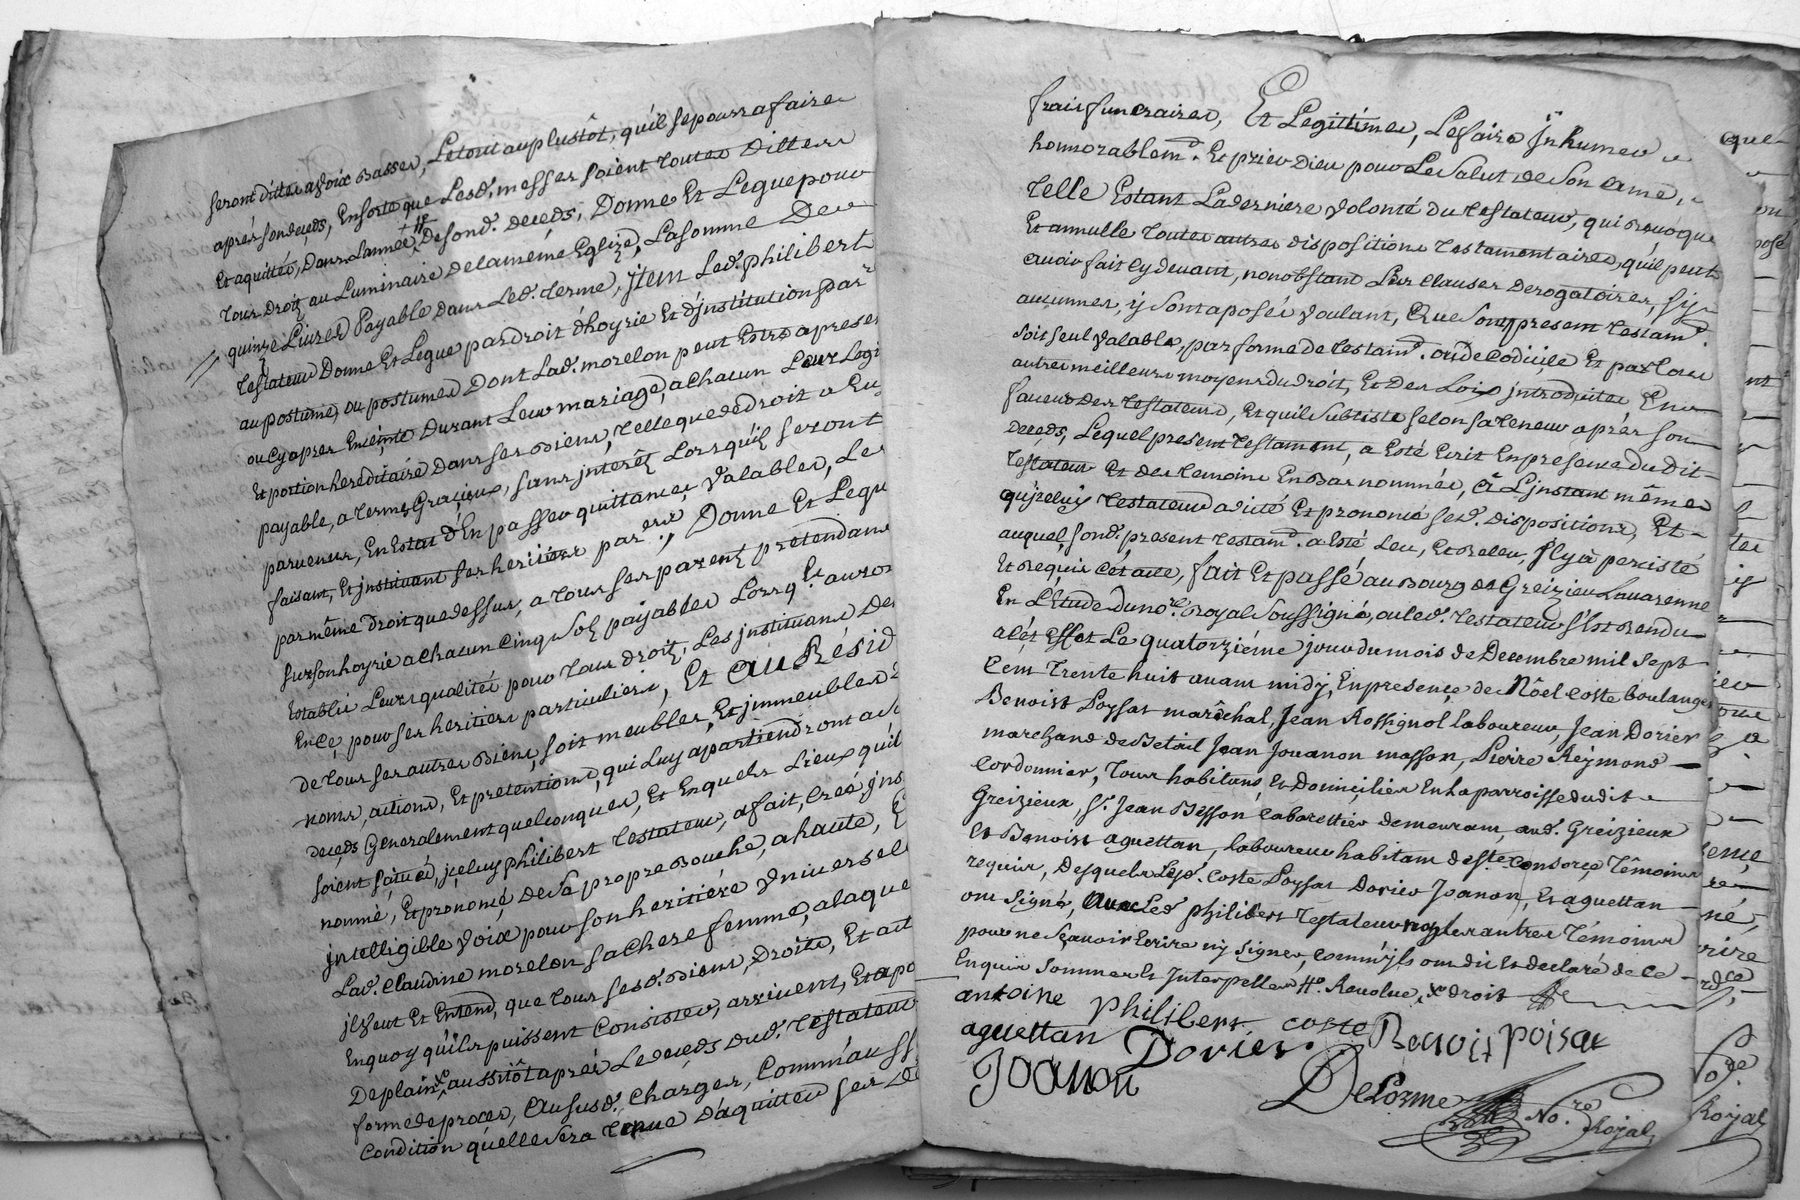 seront dittes a voix Basses, Le tout au plustôt, qu'il se pourra faire
après son deçeds, En sorte que Lesd. messes soient toutes dittes
Et aquittés, Dans L'année, De sond. deçeds, Donne Et Legue pour
tous Droitz au Luminaire de la même Eglize, La somme De
quinze Livres Payable dans Led. terme, jtem Led. philibert
testateur Donne Et Legue par droit d'hoyrie Et d'jnstitution par
au postume, ou postumes Dont Lad. morelon peut Estre a presen
ou cy apres Enceinte Durant Leur mariage, a chacun Leur Legi
Et portion hereditaire dans ses Biens, telle que de droit a Eu
payable, a termes Graçieux, sans jnterêtz Lors qu'ilz seront
parvenus, En Estat d'En passer quittances Valables, Les
faisant, Et jnstituant ses heritiers par.ers, Donne Et Legu
par même droit que dessus, a tous ses parentz pretendans
sur son hoyrie a chacun Cinq Solz payables Lors q.ls auron
Establis Leurs qualités pour tous droitz, Les jnstituans De
En ce, pour ses heritiers particuliers, Et Au Résid
de tous ses autres Biens, soit meubles, Et jmmeubles
noms, actions, Et pretentions, qui Luy apartiendront a
deçeds Generalement quelconques, Et En quels Lieux qu'il
soient situés, jçeluy philibert testateur, a fait, Creé jns
nommé, Et prononcé de sa propre Bouche, a haute, E
jntelligible Voix pour son heritière Vniversel
Lad. Claudine morelon sa chere femme, a laque
jl veut Et Entend, que tous sesd. Biens, Droits, Et act
En quoy qu'ils puissent Consister, arrivent, Et apa
De plain aussitôt après Le deçeds dud. testateur
forme de proces, Au susd. Charges, Comm'aussi
Condition qu'elle sera tenue d'aquitter ses de
frais funeraires, Et Legittimes, Le faire Jnhumer
honnorablem.t Et prier Dieu pour Le Salut de Son ame,
telle Estant La derniere Volonté du testateur, qui revoque
Et annulle toutes autres dispositions testamentaires, qu'il peut
avoir fait Cy devant, nonobstant Les Clauses derogatoires, sy
aucunnes, y sont aposés voulant, Que Son present testam.t
soit seul Valable, par forme de testam.t ou de Codicile Et par tous
autres meilleurs moyens du droit, Et des Loix jntroduites En
faveur des testateurs, Et qu'il subsiste selon sa teneur après son
Deçeds, Lequel present testament, a Esté Ecrit En presence du dit
testateur Et des temoins En Bas nommés, a L'jnstant même
qu'jceluy testateur a dicté Et prononcé sesd. dispositions, Et
auquel sond. present testam.t a Esté Leu, Et releu, jl y a percisté
Et requis cet acte, fait Et passé au Bourg de Greizieu Lavarenne
En L'Etude du no.re royal Soussigné, ou led. testateur s'est rendu
a cet effet Le quatorziéme jour du mois de Decembre mil sept
Cent trente huit avant midy, En presençe de Nöel Coste boulanger
Benoist Poysat marêchal, Jean Rossignol laboureur, Jean Dorier
marchand de Betail Jean Jouanon masson, Pierre Reymond
Cordonnier, tous habitans, Et Domiciliés En la parroisse dudit
Greizieux, Sr. Jean Besson Cabarettier demeurant aud. Greizieux
Et Benoist aguettan, laboureur habitant de S.te Consorçe Têmoins
requis, Desquels Lesd. Coste Poysat Dorier Joanon, Et aguettan
ont signé, Avec Led. philibert testateur non les autres Temoins
pour ne sçavoir Ecrire ny signer, comm'jls ont dit Et declaré de Ce
Enquis Sommes Et Interpellés Revolue, droit
antoine philibert coste Benoit poisat
aguettan Dorier
Joanon Delorme No.re Royal
No.re
Royal